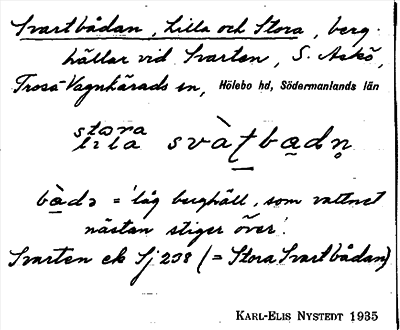 Svartbådan, Lilla och Stora, berg-
hällar vid Svarten, S. Askö,
Trosa-Vagnhärads sn, Hölebo hd, Södermanlands län
stora
lilla svàṭbadn̥
bàdə = 'låg berghäll, som vattnet
nästan stiger över'.
Svarten ek Sj 238 (= Stora Svartbådan)
KARL-ELIS NYSTEDT 1935